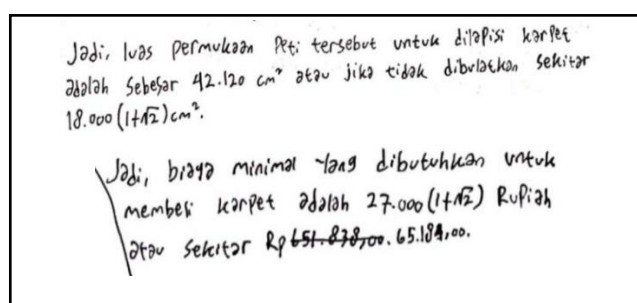 Jadi, luas permukaan Peti tersebut untuk dilapisi karpet
adalah sebesar 42.120 cm² atau jika tidak dibulatkan sekitar
18.000 (1+√2) cm².
Jadi, biaya minimal yang dibutuhkan untuk
membeli karpet adalah 27.000 (1+√2) Rupiah
atau sekitar Rp 651.838,00. 65.184,00.